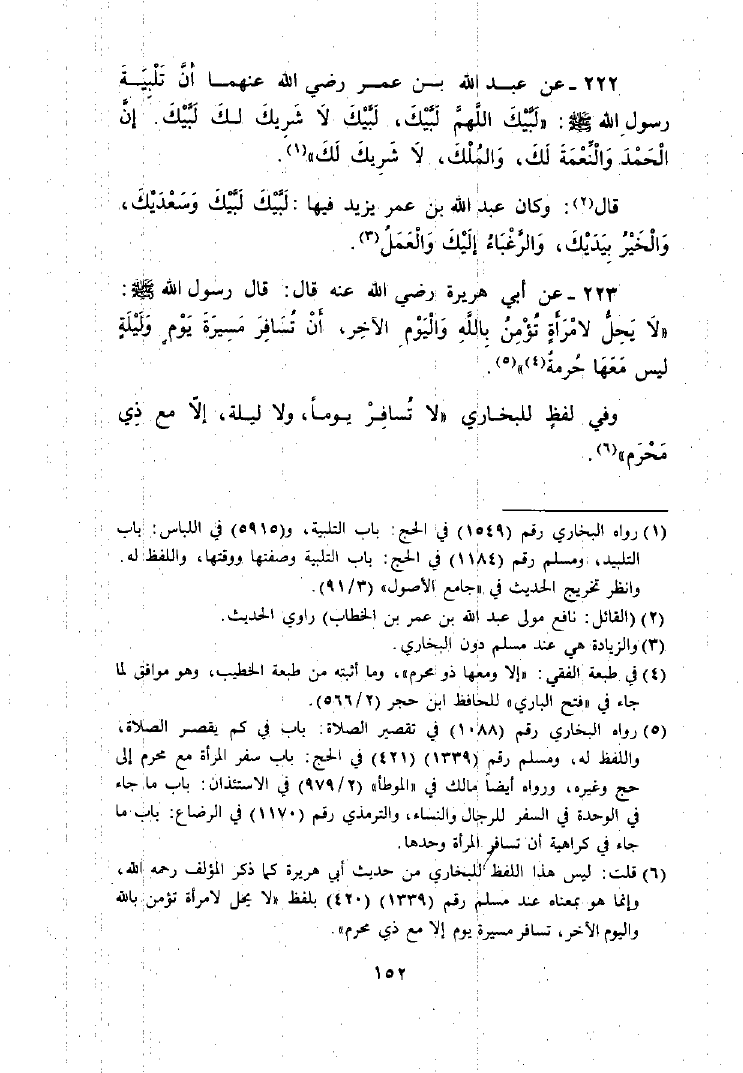 ٢٢٢ ـ عن عبـد الله بـن عمـر رضي الله عنهمـا أنَّ تَلْبِيَـةَ
رسول الله ﷺ: «لَبَّيْكَ اللَّهمَّ لَبَّيْكَ، لَبَّيْكَ لَا شَرِيكَ لـكَ لَبَّيْكَ. إنَّ
الْحَمْدَ وَالنِّعْمَةَ لَكَ، وَالمُلْكَ، لَا شَرِيكَ لَكَ»(١).
قال(٢): وكان عبد الله بن عمر يزيد فيها: لَبَّيْكَ لَبَّيْكَ وَسَعْدَيْكَ،
وَالْخَيْرُ بِيَدَيْكَ، وَالرَّغْبَاءُ إلَيْكَ وَالْعَمَلُ(٣).
٢٢٣ ـ عن أبي هريرة رضي الله عنه قال: قال رسول الله ﷺ:
«لَا يَحِلُّ لامْرَأَةٍ تُؤْمِنُ بِاللَّهِ وَالْيَوْمِ الآخِرِ، أنْ تُسَافِرَ مَسِيرَةَ يَوْمٍ وَلَيْلَةٍ
ليس مَعَهَا حُرمةٌ(٤)»(٥).
وفي لفظٍ للبخـاري «لا تُسافِرْ يـومـاً، ولا ليلـة، إلّا مع ذِي
مَحْرَمٍ»(٦).
(١) رواه البخاري رقم (١٥٤٩) في الحج: باب التلبية، و(٥٩١٥) في اللباس: باب
التلبيد، ومسلم رقم (١١٨٤) في الحج: باب التلبية وصفتها ووقتها، واللفظ له.
وانظر تخريج الحديث في «جامع الأصول» (٩١/٣).
(٢) (القائل: نافع مولى عبد الله بن عمر بن الخطاب) راوي الحديث.
(٣) والزيادة هي عند مسلم دون البخاري.
(٤) في طبعة الفقي: «إلا ومعها ذو محرم»، وما أثبته من طبعة الخطيب، وهو موافق لما
جاء في «فتح الباري» للحافظ ابن حجر (٥٦٦/٢).
(٥) رواه البخاري رقم (١٠٨٨) في تقصير الصلاة: باب في كم يقصر الصلاة،
واللفظ له، ومسلم رقم (١٣٣٩) (٤٢١) في الحج: باب سفر المرأة مع محرم إلى
حج وغيره، ورواه أيضاً مالك في «الموطأ» (٩٧٩/٢) في الاستئذان: باب ما جاء
في الوحدة في السفر للرجال والنساء، والترمذي رقم (١١٧٠) في الرضاع: باب ما
جاء في كراهية أن تسافر المرأة وحدها.
(٦) قلت: ليس هذا اللفظ للبخاري من حديث أبي هريرة كما ذكر المؤلف رحمه الله،
وإنما هو بمعناه عند مسلم رقم (١٣٣٩) (٤٢٠) بلفظ «لا يحل لامرأة تؤمن بالله
واليوم الآخر، تسافر مسيرة يوم إلا مع ذي محرم».
١٥٢